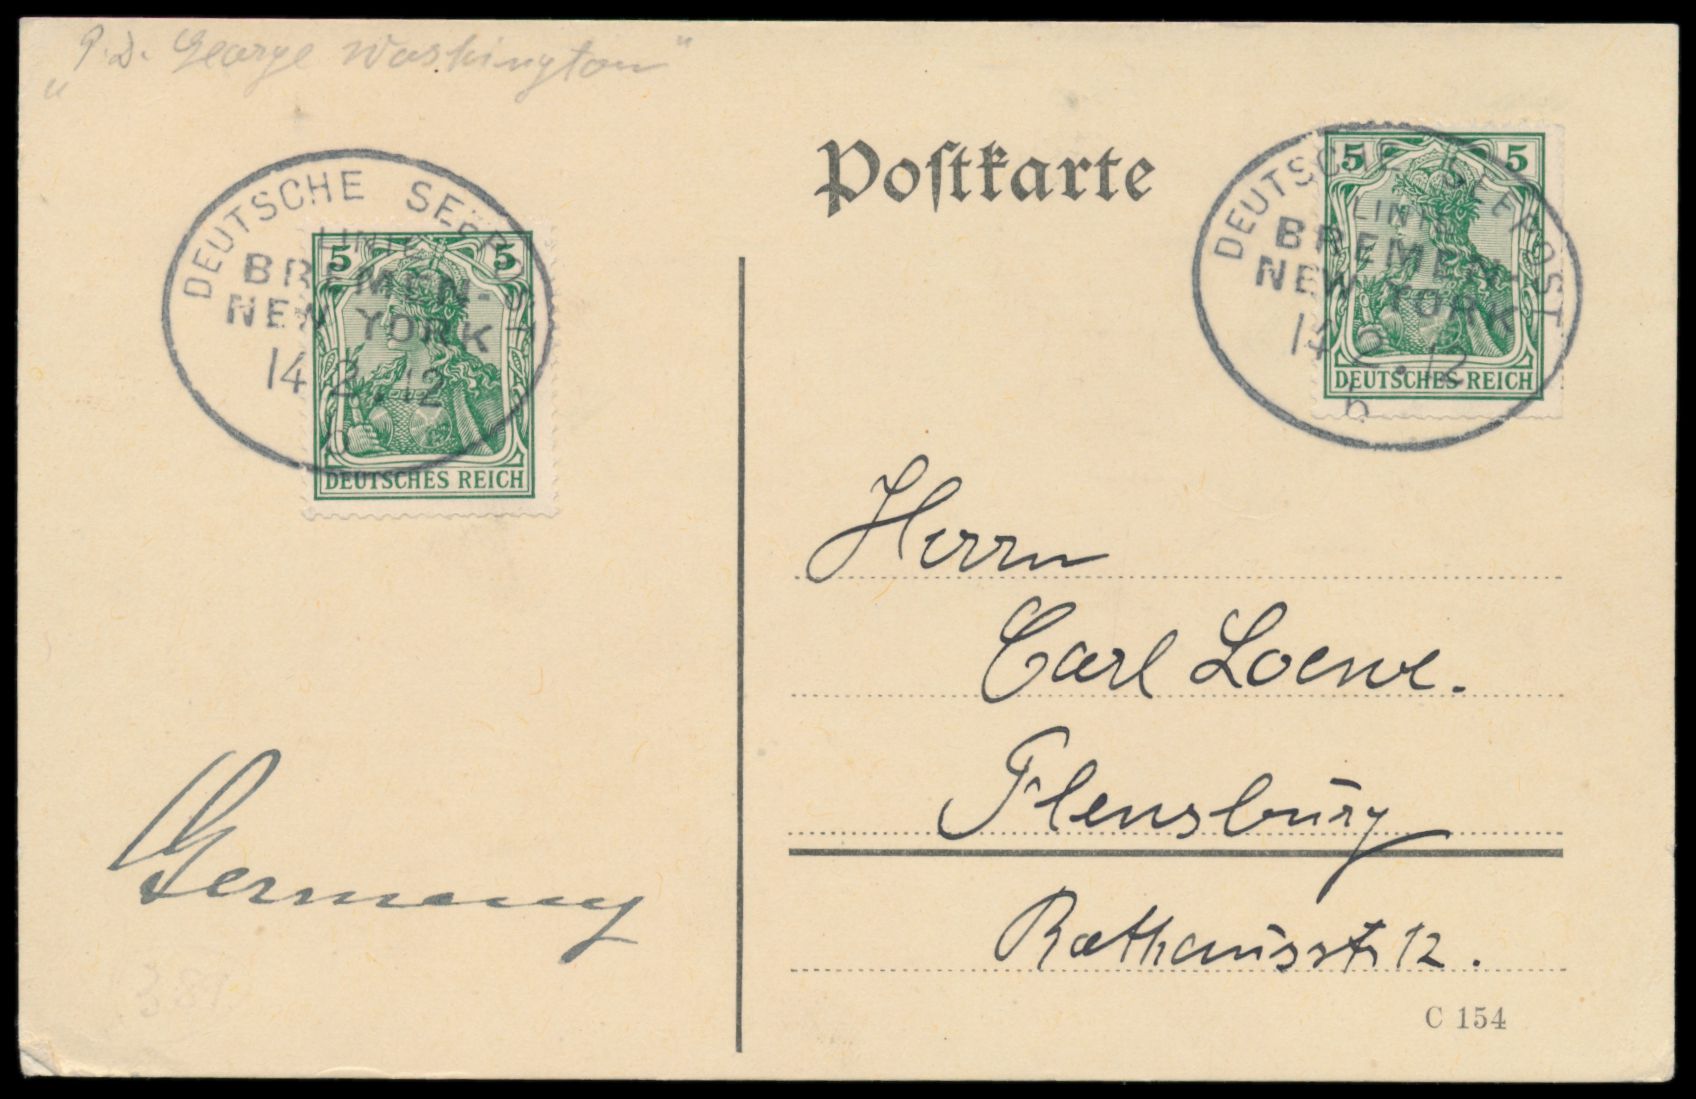 „P. D. George Washington“
Postkarte
DEUTSCHE SEEPOST
LINIE
BREMEN-
NEW YORK
14.2.12
b
5 5
DEUTSCHES REICH
DEUTSCHE SEEPOST
LINIE
BREMEN-
NEW YORK
14.2.12
b
5 5
DEUTSCHES REICH
Herrn
Carl Loewe.
Flensburg
Rathausstr 12.
Germany
C 154